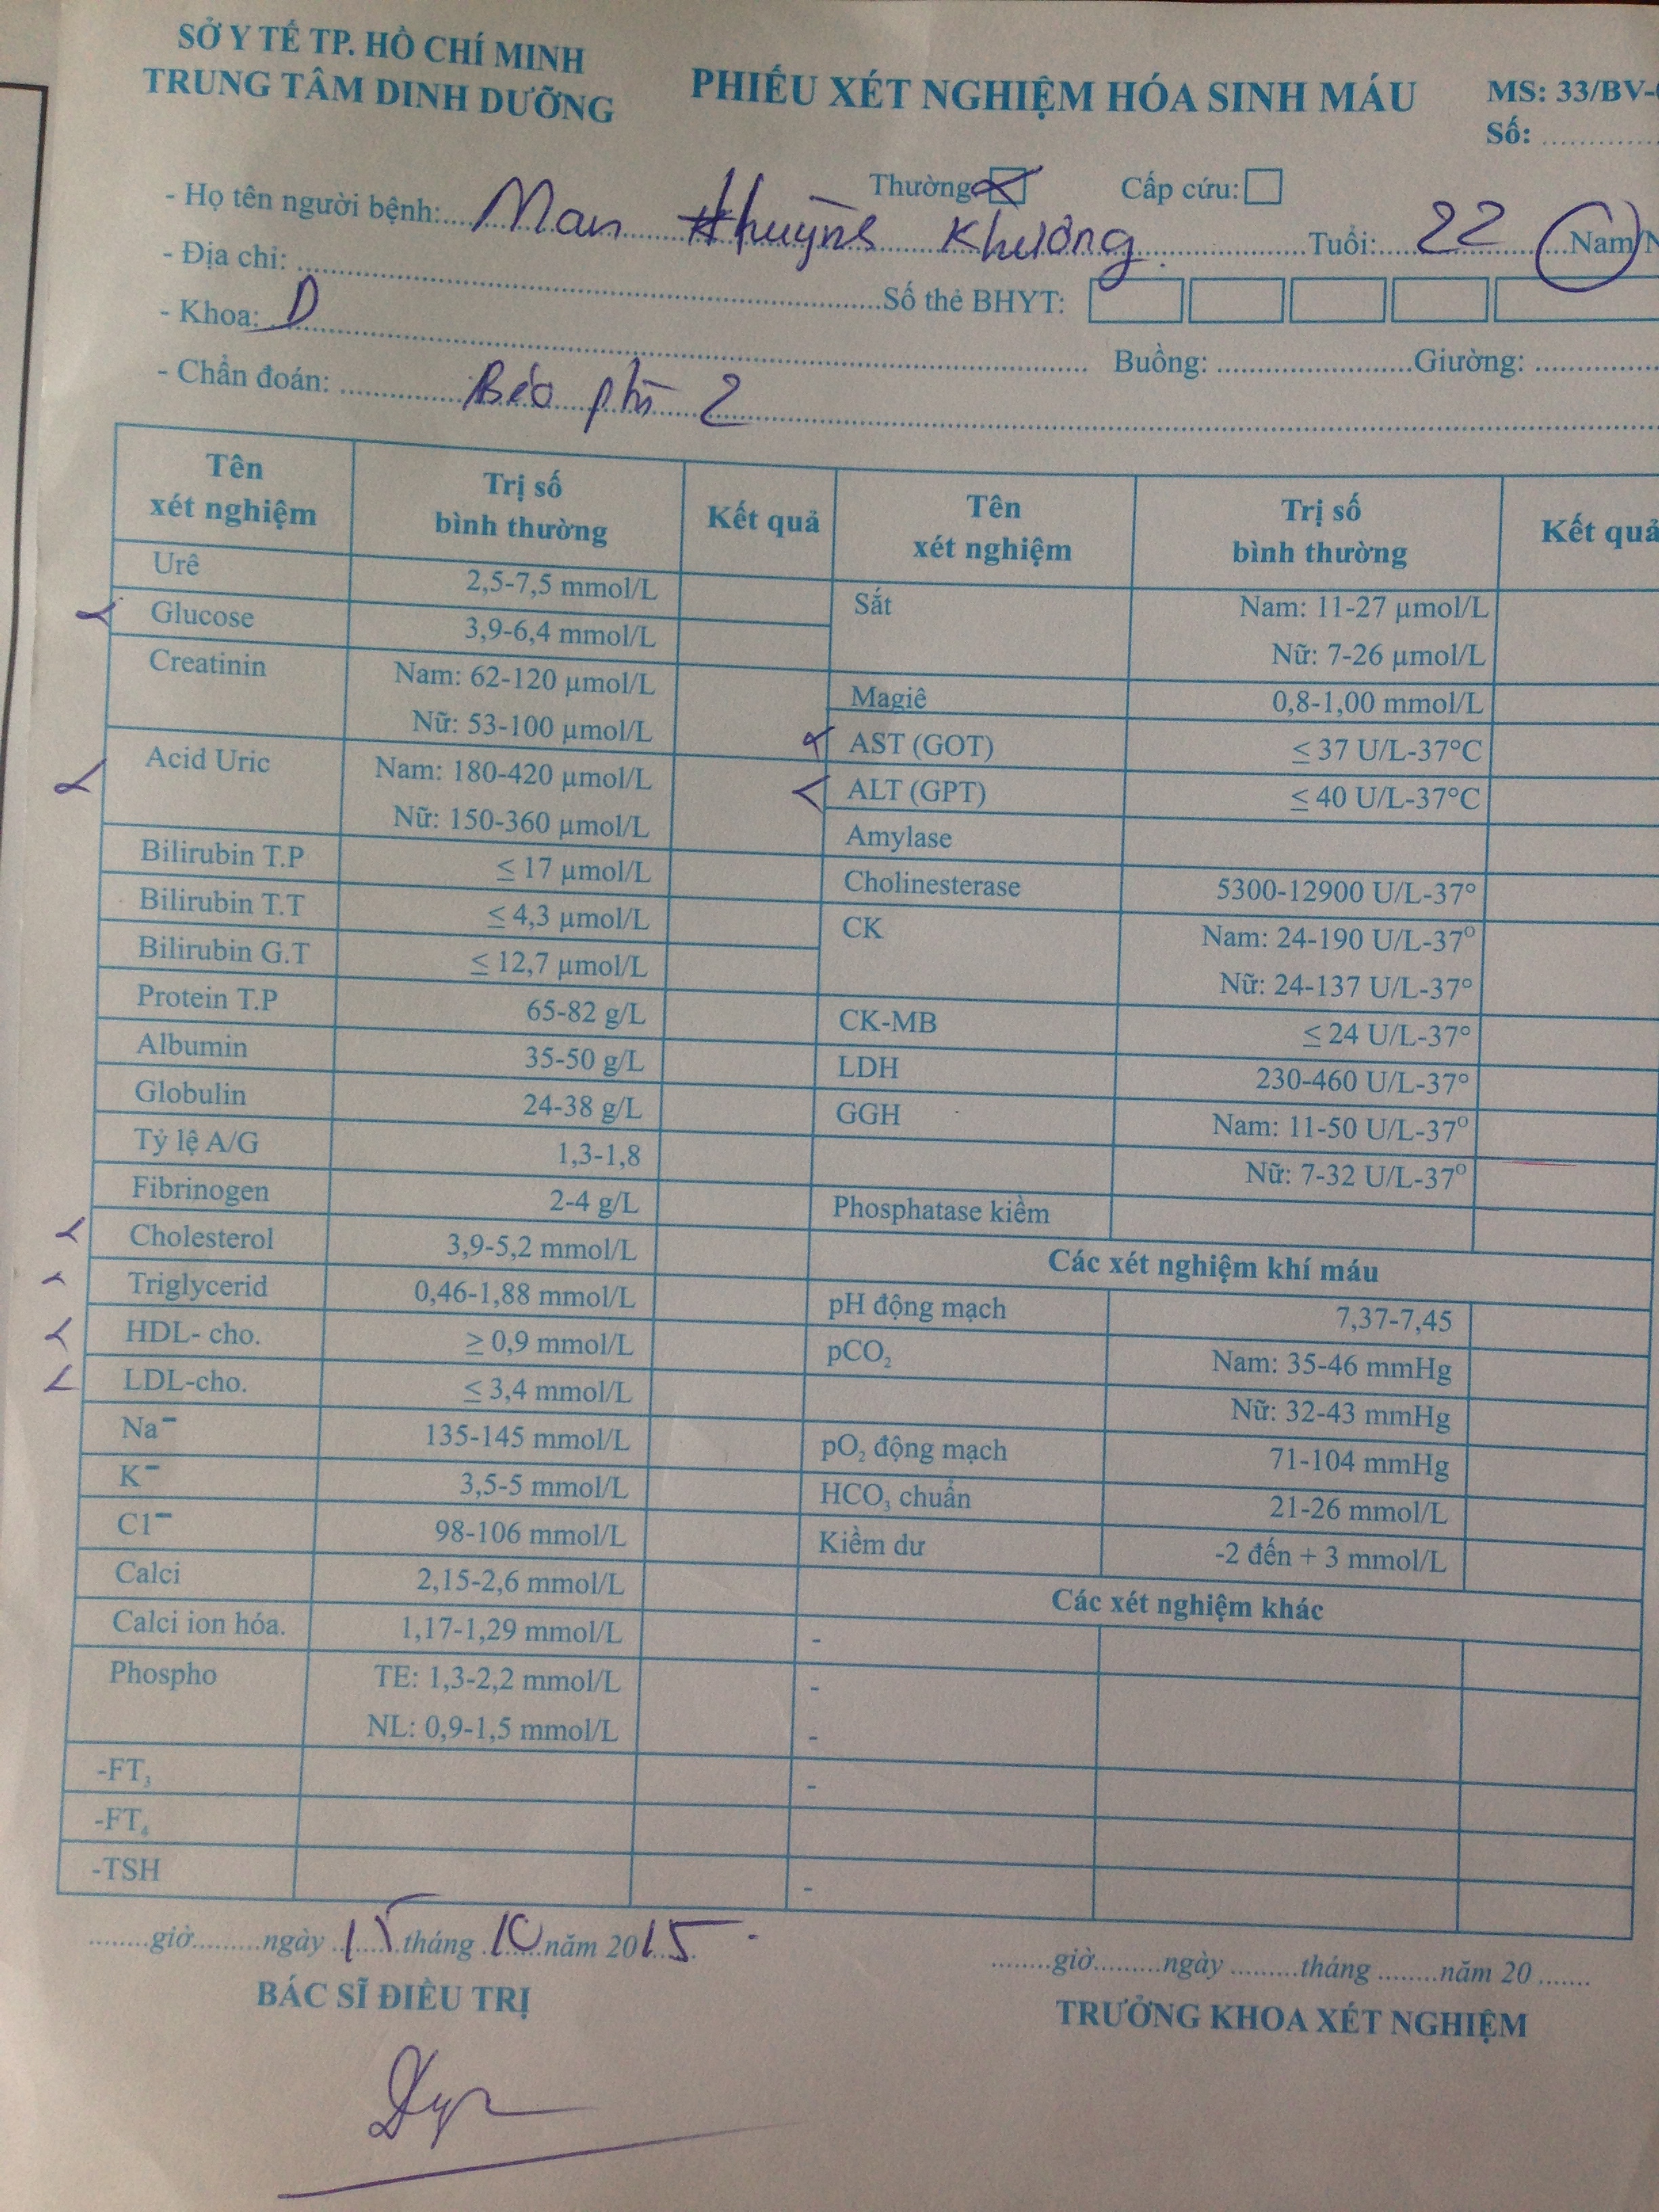 SỞ Y TẾ TP. HỒ CHÍ MINH
TRUNG TÂM DINH DƯỠNG
PHIẾU XÉT NGHIỆM HÓA SINH MÁU
MS: 33/BV-
Số: ............
Thường: Cấp cứu:
- Họ tên người bệnh: Man Huỳnh Khương Tuổi: 22 Nam/N
- Địa chỉ: ............ Số thẻ BHYT:
- Khoa: D Buồng: ............ Giường: ............
- Chẩn đoán: Béo phì 2
Tên xét nghiệm Trị số bình thường Kết quả Tên xét nghiệm Trị số bình thường Kết quả
Urê 2,5-7,5 mmol/L
Glucose 3,9-6,4 mmol/L
Creatinin Nam: 62-120 µmol/L
Nữ: 53-100 µmol/L
Acid Uric Nam: 180-420 µmol/L
Nữ: 150-360 µmol/L
Bilirubin T.P ≤ 17 µmol/L
Bilirubin T.T ≤ 4,3 µmol/L
Bilirubin G.T ≤ 12,7 µmol/L
Protein T.P 65-82 g/L
Albumin 35-50 g/L
Globulin 24-38 g/L
Tỷ lệ A/G 1,3-1,8
Fibrinogen 2-4 g/L
Cholesterol 3,9-5,2 mmol/L
Triglycerid 0,46-1,88 mmol/L
HDL- cho. ≥ 0,9 mmol/L
LDL-cho. ≤ 3,4 mmol/L
Na⁻ 135-145 mmol/L
K⁻ 3,5-5 mmol/L
C1⁻ 98-106 mmol/L
Calci 2,15-2,6 mmol/L
Calci ion hóa. 1,17-1,29 mmol/L
Phospho TE: 1,3-2,2 mmol/L
NL: 0,9-1,5 mmol/L
-FT₃
-FT₄
-TSH
Sắt Nam: 11-27 µmol/L
Nữ: 7-26 µmol/L
Magiê 0,8-1,00 mmol/L
AST (GOT) ≤ 37 U/L-37°C
ALT (GPT) ≤ 40 U/L-37°C
Amylase
Cholinesterase 5300-12900 U/L-37°
CK Nam: 24-190 U/L-37°
Nữ: 24-137 U/L-37°
CK-MB ≤ 24 U/L-37°
LDH 230-460 U/L-37°
GGH Nam: 11-50 U/L-37°
Nữ: 7-32 U/L-37°
Phosphatase kiềm
Các xét nghiệm khí máu
pH động mạch 7,37-7,45
pCO₂ Nam: 35-46 mmHg
Nữ: 32-43 mmHg
pO₂ động mạch 71-104 mmHg
HCO₃ chuẩn 21-26 mmol/L
Kiềm dư -2 đến + 3 mmol/L
Các xét nghiệm khác
-
-
-
-
-
........giờ.........ngày 15 tháng 10 năm 2015
BÁC SĨ ĐIỀU TRỊ
........giờ.........ngày .........tháng ........năm 20 .......
TRƯỞNG KHOA XÉT NGHIỆM